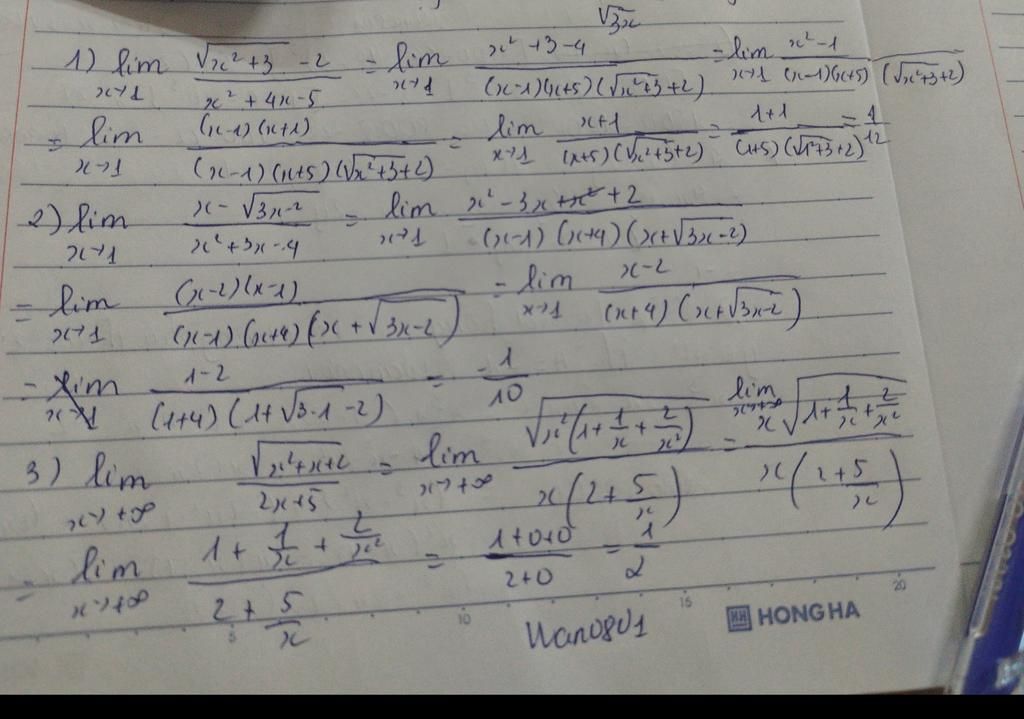 √3x
1) lim x→1 (√(x²+3) - 2)/(x² + 4x - 5) = lim x→1 (x² + 3 - 4)/((x-1)(x+5)(√(x²+3)+2)) = lim x→1 (x² - 1)/((x-1)(x+5)(√(x²+3)+2))
= lim x→1 ((x-1)(x+1))/((x-1)(x+5)(√(x²+3)+2)) = lim x→1 (x+1)/((x+5)(√(x²+3)+2)) = (1+1)/((1+5)(√(1²+3)+2)) = 1/12
2) lim x→1 (x - √(3x-2))/(x² + 3x - 4) = lim x→1 (x² - 3x + 2)/((x-1)(x+4)(x+√(3x-2)))
= lim x→1 ((x-2)(x-1))/((x-1)(x+4)(x+√(3x-2))) = lim x→1 (x-2)/((x+4)(x+√(3x-2)))
= (1-2)/((1+4)(1+√(3·1-2))) = -1/10
3) lim x→+∞ √(x²+x+2)/(2x+5) = lim x→+∞ √(x²(1+1/x+2/x²))/(x(2+5/x)) = lim x→+∞ x√(1+1/x+2/x²)/(x(2+5/x))
= lim x→+∞ (1+1/x+2/x²)/(2+5/x) = (1+0+0)/(2+0) = 1/2
5 10 15 20
HONG HA